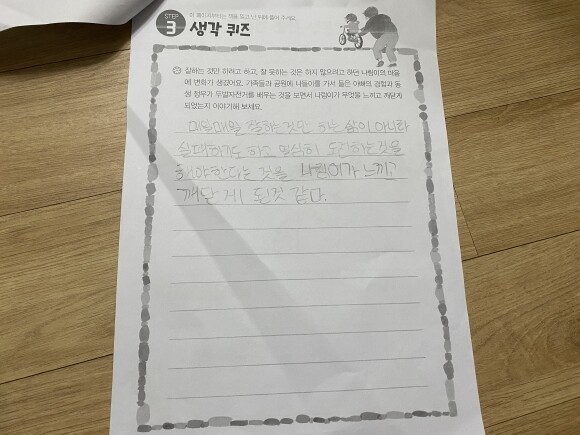 STEP 3
이 페이지부터는 책을 읽고 난 뒤에 풀어 주세요.
생각 퀴즈
잘하는 것만 하려고 하고, 잘 못하는 것은 하지 않으려고 하던 나림이의 마음
에 변화가 생겼어요. 가족들과 공원에 나들이를 가서 들은 아빠의 경험과 동
생 정우가 두발자전거를 배우는 것을 보면서 나림이가 무엇을 느끼고 깨닫게
되었는지 이야기해 보세요.
매일매일 잘하는것만 하는 삶이 아니라
실패하기도 하고 열심히 도전하는것을
해야한다는 것을 나림이가 느끼고
깨닫 게 된것 같다.